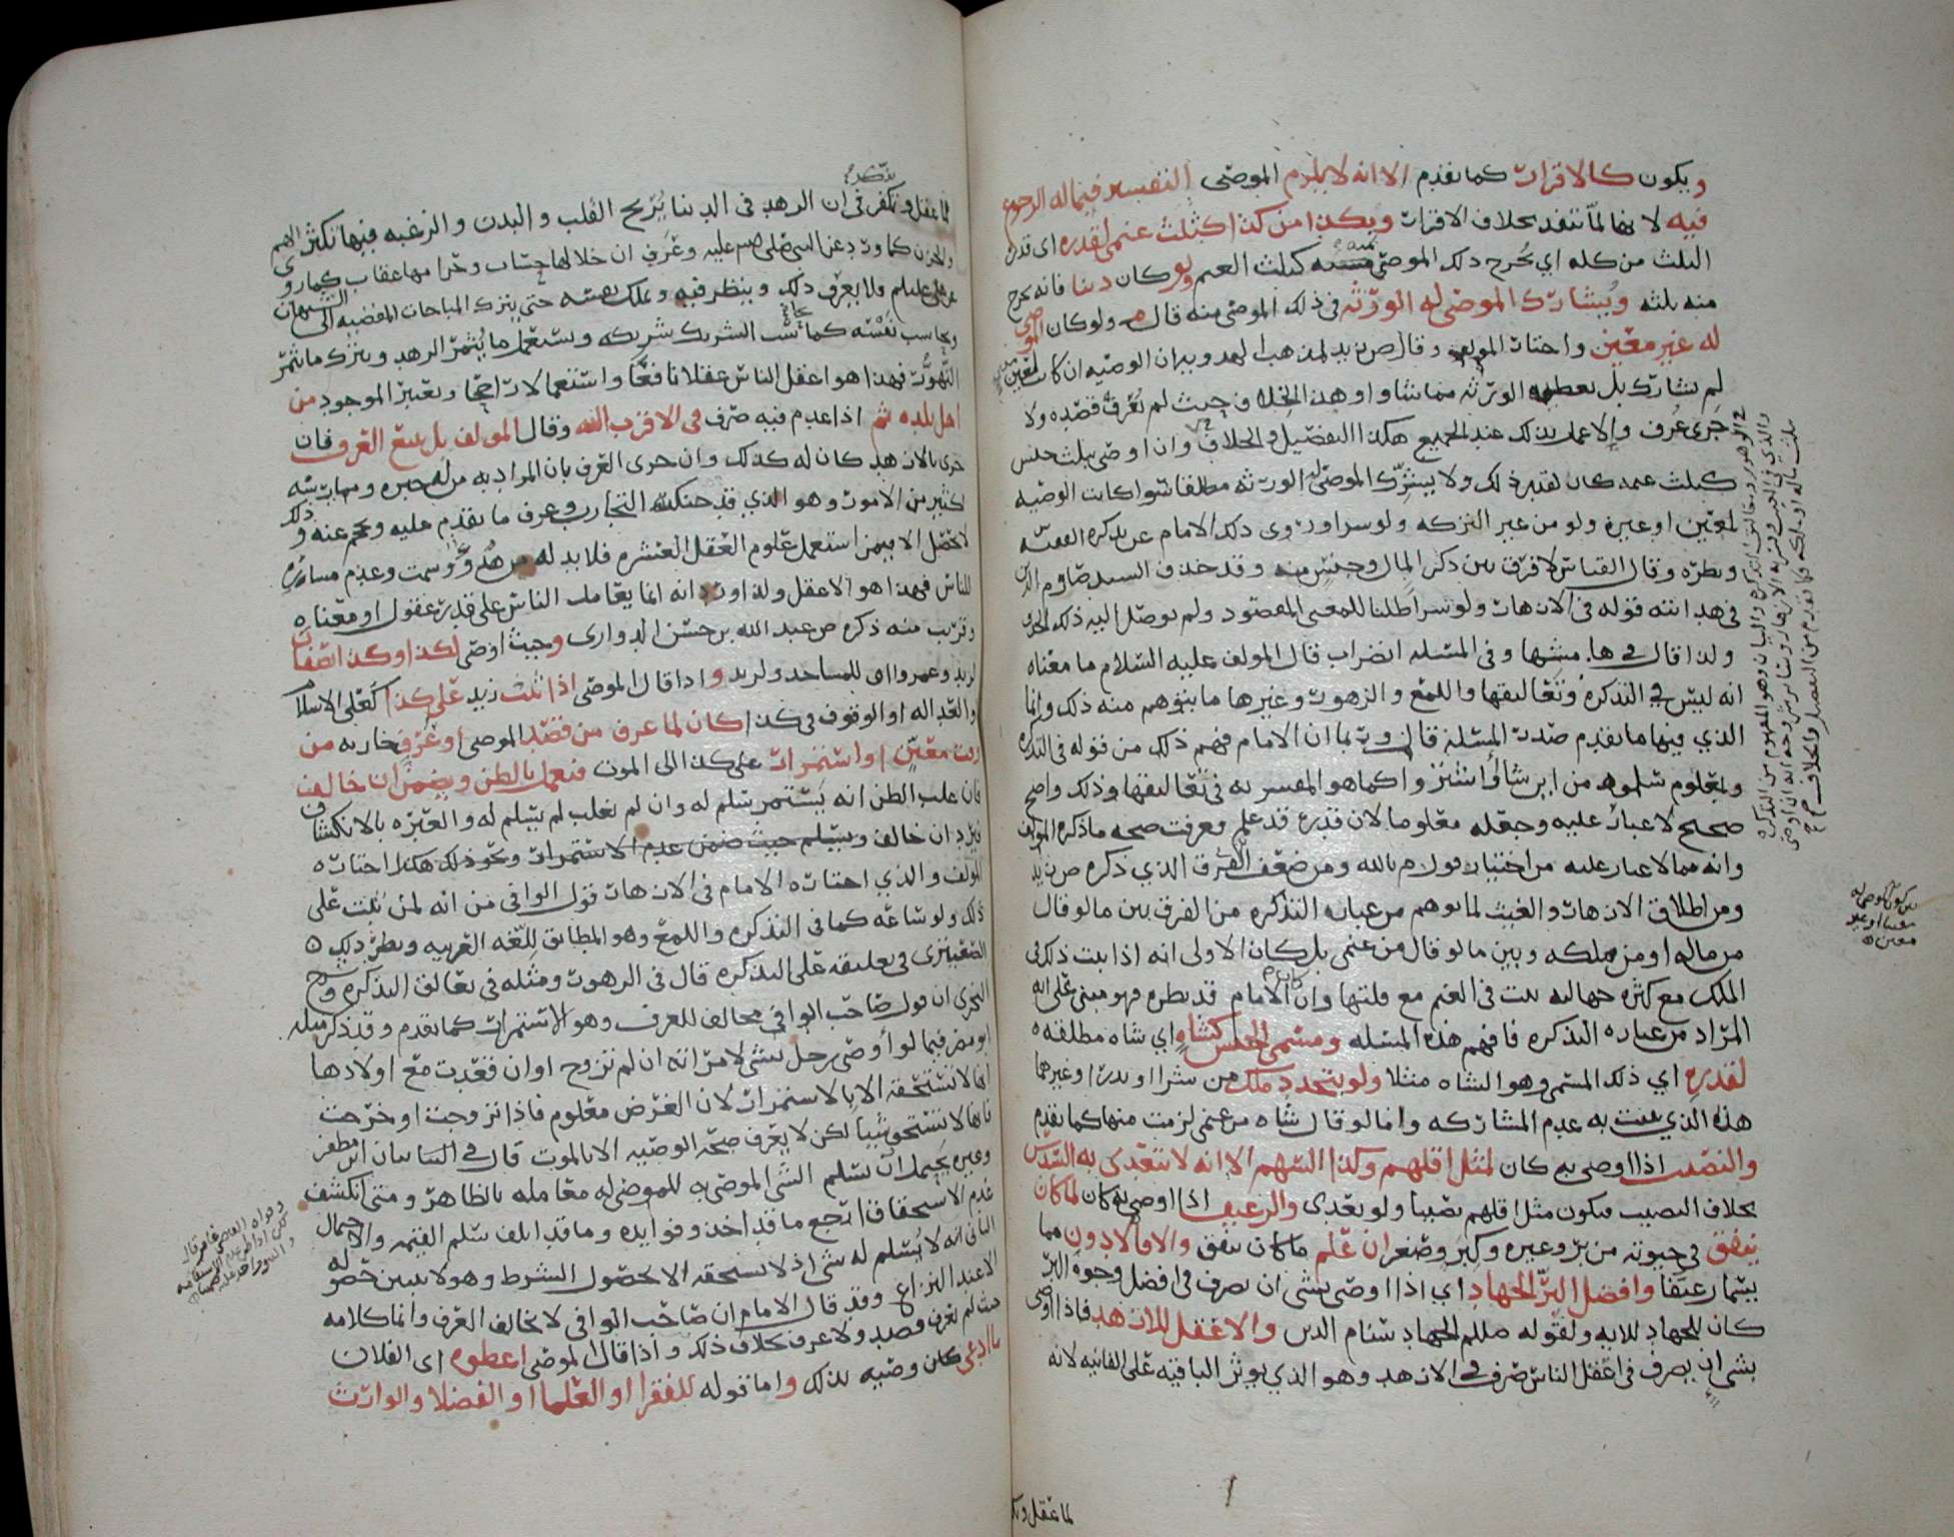 ويكون كالاقرار كما تقدم الا انه لا يلزم الموصى التفسير فيما له الرجوع
فيه لا بما لما تنفد بخلاف الاقرار وبكذا من كذا كثلث غنمى لقدره اى قدر
الثلث من كله اي يخرج ذلك الموصى كثلث الغنم ولو كان دينا فانه يخرج
منه ثلثه ويشارك الموصى له الورثه في ذلك الموصى منه قال ولو كان الموصى
له غير معين واختار المولف وقال ص زيد لمذهب الهدويه ان الوصيه ان كانت لمعين
لم يشارك بل يعطيه الورثه مما شاوا وهذا الخلاف حيث لم يعرف قصده ولا
جرى عرف والا عمل بذلك عند الجميع هكذا التفصيل في الخلاف وان اوصى بثلث جنس
كثلث غنمه كان لقدر ذلك ولا يشرك الموصى له الورثه مطلقا سوا كانت الوصيه
لمعين او غيره ولو من غير التركه ولو سرا وروى ذلك الامام عن تذكره الفقيه
ونظره وقال القياس لا فرق بين ذكر المال وجنس منه وقد حذف السيد صارم الدين
في هدايته قوله في الازهار ولو شرا طلبا للمعنى المقصود ولم يوصل اليه ذلك
ولذا قال في هامشها وفي المسله اضراب قال المولف عليه السلام ما معناه
انه ليس في التذكره وتعاليقها واللمع والزهور وغيرها ما يتوهم منه ذلك وانما
الذي فيها ما تقدم صدر المسله قال وربما ان الامام فهم ذلك من قوله في التذكره
ومعلوم من ابر شا او اشتر واكما هو المفسر به في تعاليقها وذلك واضح
صحيح لا غبار عليه وجعله معلوما لان قدره قد علم وعرفت صحه ما ذكره المولف
وانه مما لا غبار عليه من اختيار قول م بالله ومن ضعف الفرق الذي ذكره ص زيد
ومن اطلاق الازهار والغيث لما توهم من عباره التذكره من الفرق بين ما لو قال
من ماله او من ملكه وبين ما لو قال من غنمى بل كان الاولى انه اذا ثبت ذلك في
الملك مع كثره جهالته ثبت في الغنم مع قلتها وان كان الامام قد نظره فهو مبنى على انه
المراد من عباره التذكره فافهم هذه المسله ومسمى الجنس كشاه اي شاه مطلقه
لقدره اي ذلك المسمى وهو الشاه مثلا ولو بتجدد ملك من شرا او نذر او غيرهما
هذه الذي ثبت به عدم المشاركه واما لو قال شاه من غنمى لزمت منها كما تقدم
والنصيب اذا اوصى به كان لمثل اقلهم وكذا السهم الا انه لا يتعدى به السدس
بخلاف النصيب فيكون مثل اقلهم نصيبا ولو تعدى والرغيف اذا اوصى به كان لما كان
ينفق في حيوته من بر وغيره وكبر وصغر ان علم ما كان ينفق والا فالادون مما
يسما رغيفا وافضل البر الجهاد اي اذا اوصى بشى ان يصرف في افضل وجوه البر
كان للجهاد للايه ولقوله صللم الجهاد سنام الدين والاعقل للازهد فاذا اوصى
بشى ان يصرف في اعقل الناس صرف في الازهد وهو الذي يوثر الباقيه على الفانيه لانه
لما عقل وتفكر
يكون الموصى له
معينا او غير
معين ه
لما عقل وتفكر في ان الزهد في الدنيا يريح القلب والبدن والرغبه فيها تكثر الهم
والحزن كما ورد عن النبى صلى الله عليه وعرف ان حلالها حساب وحرامها عقاب كما روى
عن على عليلم ولا يعرف ذلك وينظر فيه ويملك نفسه حتى يترك المباحات المفضيه الى الشبهات
ويحاسب نفسه كما يحاسب الشريك شريكه ويستعمل ما يثمر الزهد ويترك ما يثمر
التهور فهذا هو اعقل الناس عقلا نافعا واستعمالا راجحا ويعتبر الموجود من
اهل بلده ثم اذا عدم فيه صرف في الاقرب اليه وقال المولف بل يتبع العرف فان
جرى بالازهد كان له كذلك وان جرى العرف بان المراد به من له خبره وممارسه
لكثير من الامور وهو الذي قد حنكته التجارب وعرف ما يقدم عليه ويحجم عنه وذلك
لا يحصل الا بمن استعمل علوم العقل العشره فلا بد له من هدو وسمت وعدم مساره
للناس فهذا هو الاعقل ولذا ورد انه انما يعامل الناس على قدر عقولهم او معناه
وقريب منه ذكره ص عبد الله بن حسن الدواري وحيث اوصى لكذا وكذا نصفان
لزيد وعمرو او للمساجد ولزيد واذا قال الموصى اذا ثبت زيد على كذا كعلى الاسلام
والعداله او الوقوف في كذا كان لما عرف من قصد الموصى او عرف جار به من
وقت معين او استمرار على كذا الى الموت فيعمل بالظن ويضمن ان خالف
فان غلب الظن انه يستمر سلم له وان لم يغلب لم يسلم له والعبره بالانكشاف
فيرد ان خالف ويسلم حيث ضمن عدم الاستمرار ونحو ذلك هكذا اختاره
المولف والذي اختاره الامام في الازهار قول الوافي من انه لمن ثبت على
ذلك ولو ساعه كما في التذكره واللمع وهو المطابق للغه العربيه ونظر ذلك
الصعيترى في تعليقه على التذكره قال في الزهور ومثله في تعالق التذكره وشرح
البحرى ان قول صاحب الوافي مخالف للعرف وهو الاستمرار كما تقدم وقد ذكر مثله
ابو مضر فيما لو اوصى رجل بشى لامراته ان لم تزوج او ان قعدت مع اولادها
انها لا تستحقه الا بالاستمرار لان الغرض معلوم فاذا تزوجت او خرجت
فانها لا تستحق شيا لكن لا يعرف صحه الوصيه الا بالموت قال في البيان ابن مظفر
وغيره يحتمل ان يسلم الشى الموصى به للموصى له معامله بالظاهر ومتى انكشف
عدم الاستحقاق استرجع ما قد اخذ وفوايده وما قد اتلف سلم القيمه والاحتمال
الثاني انه لا يسلم له شى اذ لا يستحقه الا بحصول الشرط وهو لا يتبين حصوله
الا عند النزاع وقد قال الامام ان صاحب الوافي لا يخالف العرف وانما كلامه
حيث لم يعرف قصد ولا عرف بخلاف ذلك واذا قال الموصى اعطوه اى الفلان
ما ادعى كان وصيه بذلك واما قوله للفقرا او العلما او الفضلا والوارث